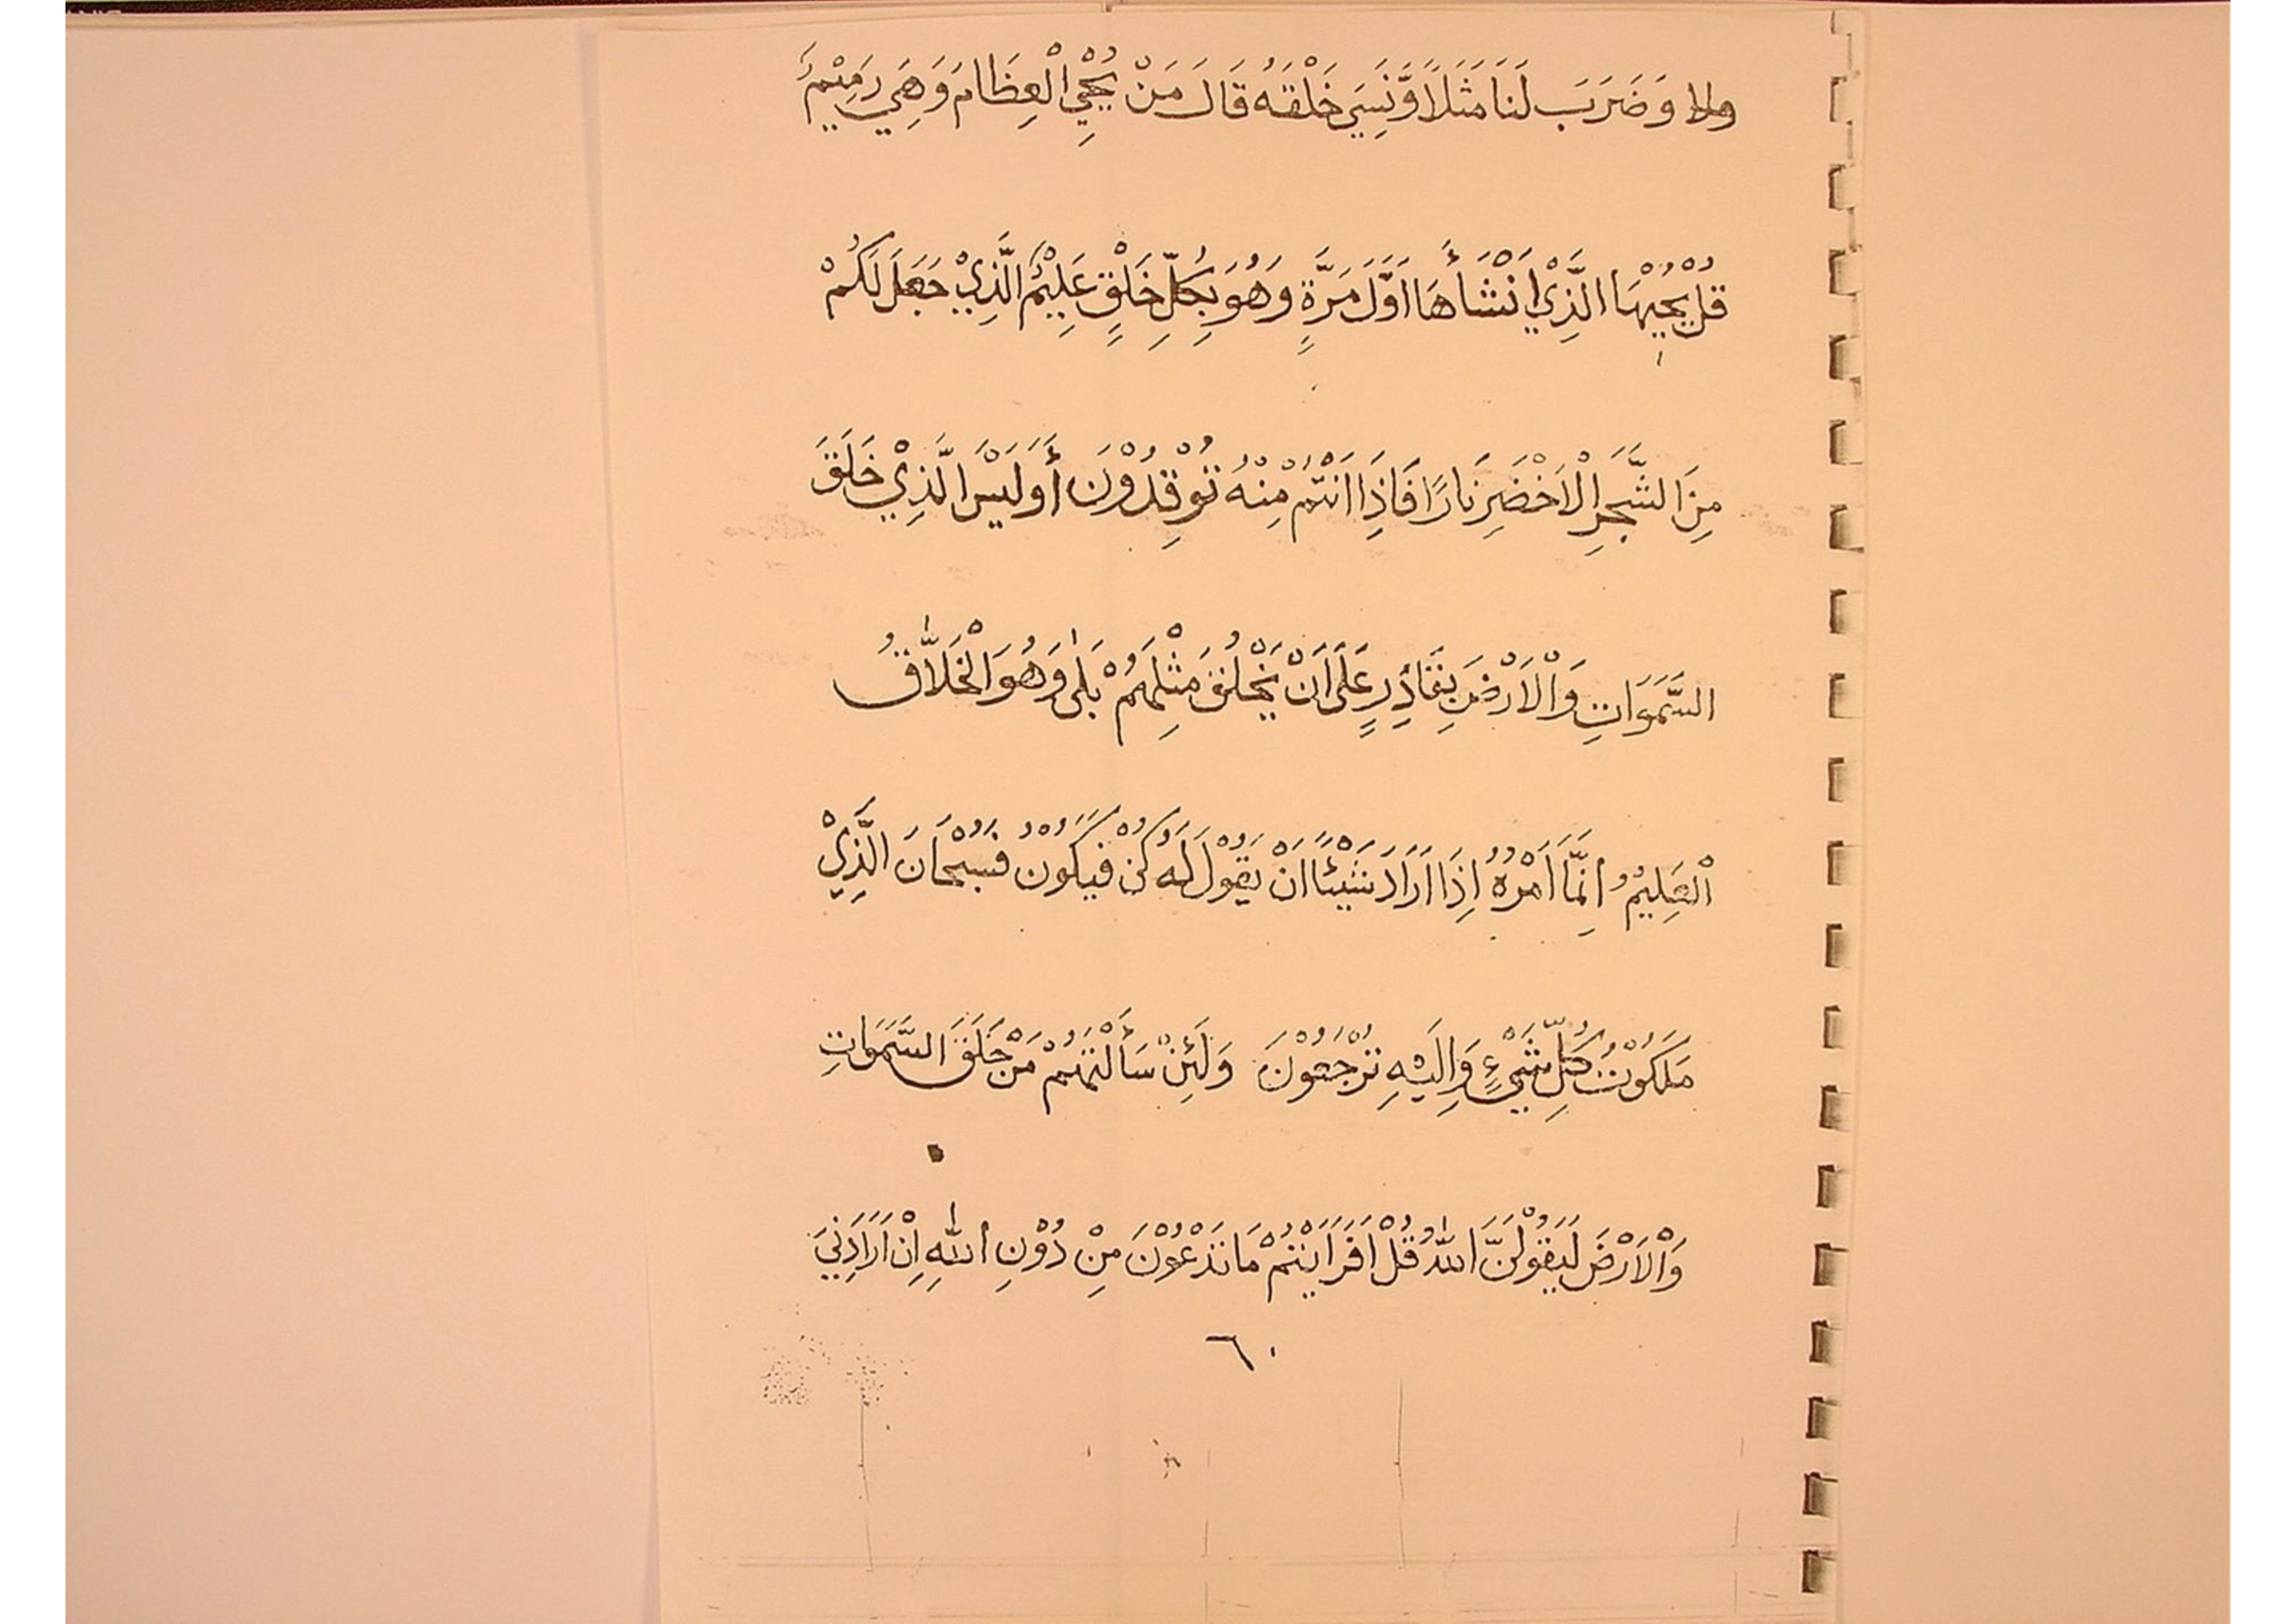 وَضَرَبَ لَنَا مَثَلًا وَّنَسِيَ خَلْقَهُ قَالَ مَنْ يُحْيِ الْعِظَامَ وَهِيَ رَمِيْمٌ
قُلْ يُحْيِيْهَا الَّذِيْ اَنْشَأَهَا اَوَّلَ مَرَّةٍ وَهُوَ بِكُلِّ خَلْقٍ عَلِيْمٌ الَّذِيْ جَعَلَ لَكُمْ
مِنَ الشَّجَرِ الْاَخْضَرِ نَارًا فَاِذَا اَنْتُمْ مِنْهُ تُوْقِدُوْنَ أَوَلَيْسَ الَّذِيْ خَلَقَ
السَّمَوَاتِ وَالْاَرْضَ بِقَادِرٍ عَلَى اَنْ يَخْلُقَ مِثْلَهُمْ بَلٰى وَهُوَ الْخَلَّاقُ
الْعَلِيْمُ اِنَّمَا اَمْرُهُ اِذَا اَرَادَ شَيْئًا اَنْ يَقُوْلَ لَهُ كُنْ فَيَكُوْنُ فَسُبْحَانَ الَّذِيْ
مَلَكُوْتُ كُلِّ شَيْءٍ وَاِلَيْهِ تُرْجَعُوْنَ وَلَئِنْ سَأَلْتَهُمْ مَنْ خَلَقَ السَّمَوَاتِ
وَالْاَرْضَ لَيَقُوْلُنَّ اللّٰهُ قُلْ اَفَرَاَيْتُمْ مَا تَدْعُوْنَ مِنْ دُوْنِ اللّٰهِ اِنْ اَرَادَنِيَ
٦٠